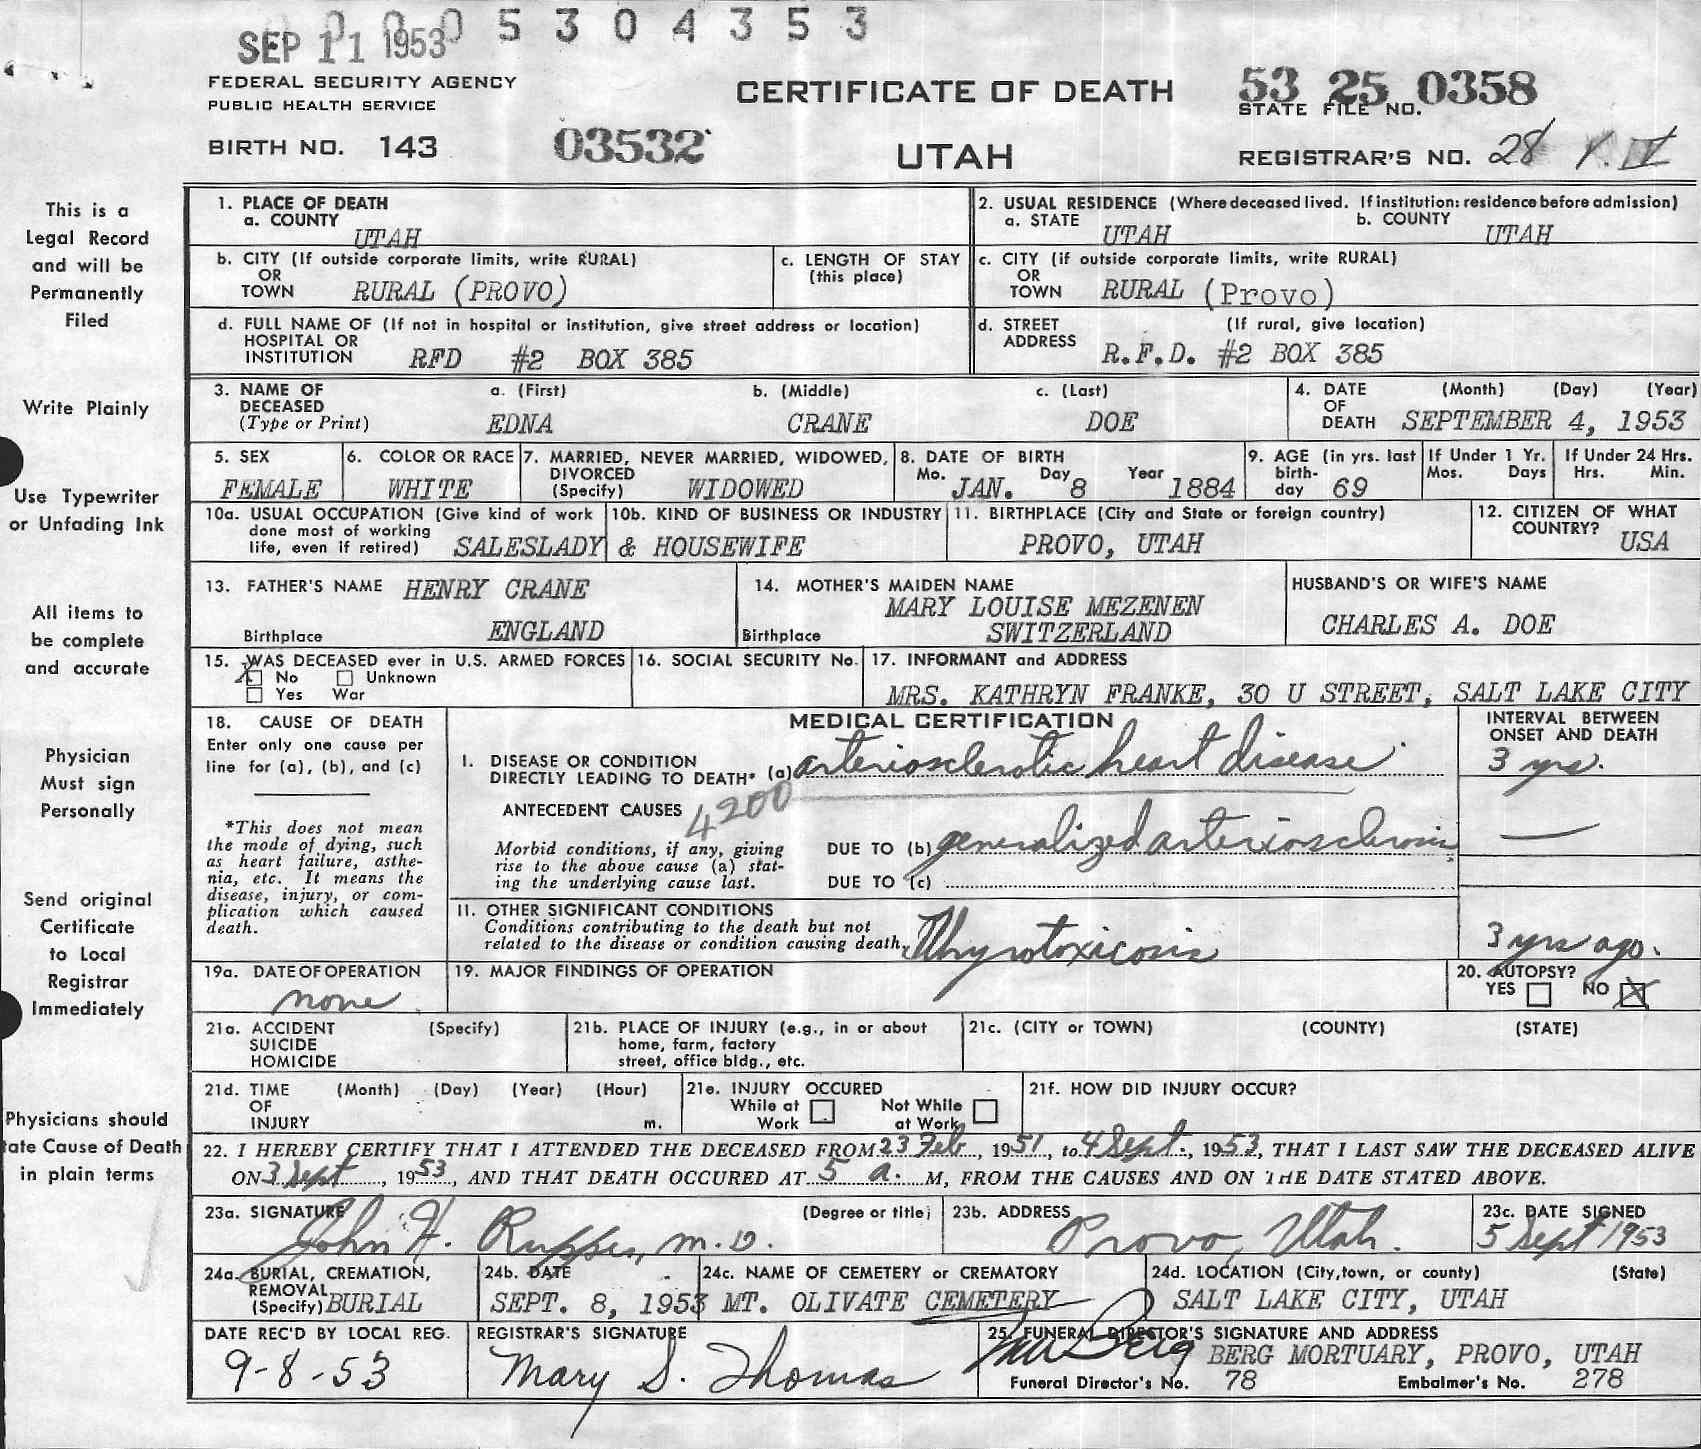 0 0 0 5 3 0 4 3 5 3
SEP 11 1953
FEDERAL SECURITY AGENCY
PUBLIC HEALTH SERVICE
BIRTH NO. 143 03532
CERTIFICATE OF DEATH
UTAH
53 25 0358
STATE FILE NO.
REGISTRAR'S NO. 28
This is a
Legal Record
and will be
Permanently
Filed
Write Plainly
Use Typewriter
or Unfading Ink
All items to
be complete
and accurate
Physician
Must sign
Personally
Send original
Certificate
to Local
Registrar
Immediately
Physicians should
tate Cause of Death
in plain terms
1. PLACE OF DEATH
a. COUNTY
UTAH
2. USUAL RESIDENCE (Where deceased lived. If institution: residence before admission)
a. STATE UTAH b. COUNTY UTAH
b. CITY (If outside corporate limits, write RURAL)
OR
TOWN RURAL (PROVO)
c. LENGTH OF STAY
(this place)
c. CITY (if outside corporate limits, write RURAL)
OR
TOWN RURAL (Provo)
d. FULL NAME OF (If not in hospital or institution, give street address or location)
HOSPITAL OR
INSTITUTION RFD #2 BOX 385
d. STREET (If rural, give location)
ADDRESS R.F.D. #2 BOX 385
3. NAME OF a. (First) b. (Middle) c. (Last)
DECEASED
(Type or Print) EDNA CRANE DOE
4. DATE (Month) (Day) (Year)
OF
DEATH SEPTEMBER 4, 1953
5. SEX
FEMALE
6. COLOR OR RACE
WHITE
7. MARRIED, NEVER MARRIED, WIDOWED,
DIVORCED
(Specify) WIDOWED
8. DATE OF BIRTH
Mo. JAN. Day 8 Year 1884
9. AGE (in yrs. last
birth-
day 69
If Under 1 Yr.
Mos. Days
If Under 24 Hrs.
Hrs. Min.
10a. USUAL OCCUPATION (Give kind of work
done most of working
life, even if retired) SALESLADY & HOUSEWIFE
10b. KIND OF BUSINESS OR INDUSTRY
11. BIRTHPLACE (City and State or foreign country)
PROVO, UTAH
12. CITIZEN OF WHAT
COUNTRY? USA
13. FATHER'S NAME HENRY CRANE
Birthplace ENGLAND
14. MOTHER'S MAIDEN NAME
MARY LOUISE MEZENEN
Birthplace SWITZERLAND
HUSBAND'S OR WIFE'S NAME
CHARLES A. DOE
15. WAS DECEASED ever in U.S. ARMED FORCES
No Unknown
Yes War
16. SOCIAL SECURITY No.
17. INFORMANT and ADDRESS
MRS. KATHRYN FRANKE, 30 U STREET, SALT LAKE CITY
18. CAUSE OF DEATH
Enter only one cause per
line for (a), (b), and (c)
*This does not mean
the mode of dying, such
as heart failure, asthe-
nia, etc. It means the
disease, injury, or com-
plication which caused
death.
MEDICAL CERTIFICATION
INTERVAL BETWEEN
ONSET AND DEATH
I. DISEASE OR CONDITION
DIRECTLY LEADING TO DEATH* (a) arteriosclerotic heart disease 3 yrs.
ANTECEDENT CAUSES 4200
Morbid conditions, if any, giving
rise to the above cause (a) stat-
ing the underlying cause last.
DUE TO (b) generalized arteriosclerosis
DUE TO (c)
11. OTHER SIGNIFICANT CONDITIONS
Conditions contributing to the death but not
related to the disease or condition causing death. Thyrotoxicosis 3 yrs ago.
19a. DATE OF OPERATION
none
19. MAJOR FINDINGS OF OPERATION
20. AUTOPSY?
YES NO
21a. ACCIDENT (Specify)
SUICIDE
HOMICIDE
21b. PLACE OF INJURY (e.g., in or about
home, farm, factory
street, office bldg., etc.
21c. (CITY or TOWN) (COUNTY) (STATE)
21d. TIME (Month) (Day) (Year) (Hour)
OF
INJURY m.
21e. INJURY OCCURED
While at Not While
Work at Work
21f. HOW DID INJURY OCCUR?
22. I HEREBY CERTIFY THAT I ATTENDED THE DECEASED FROM 23 Feb, 1951, to 4 Sept., 1953, THAT I LAST SAW THE DECEASED ALIVE
ON 3 Sept, 1953, AND THAT DEATH OCCURED AT 5 a. M, FROM THE CAUSES AND ON THE DATE STATED ABOVE.
23a. SIGNATURE (Degree or title)
John H. Rupper, M.D.
23b. ADDRESS
Provo, Utah.
23c. DATE SIGNED
5 Sept 1953
24a. BURIAL, CREMATION,
REMOVAL
(Specify) BURIAL
24b. DATE
SEPT. 8, 1953
24c. NAME OF CEMETERY or CREMATORY
MT. OLIVATE CEMETERY
24d. LOCATION (City, town, or county) (State)
SALT LAKE CITY, UTAH
DATE REC'D BY LOCAL REG.
9-8-53
REGISTRAR'S SIGNATURE
Mary S. Thomas
25. FUNERAL DIRECTOR'S SIGNATURE AND ADDRESS
Berg BERG MORTUARY, PROVO, UTAH
Funeral Director's No. 78 Embalmer's No. 278